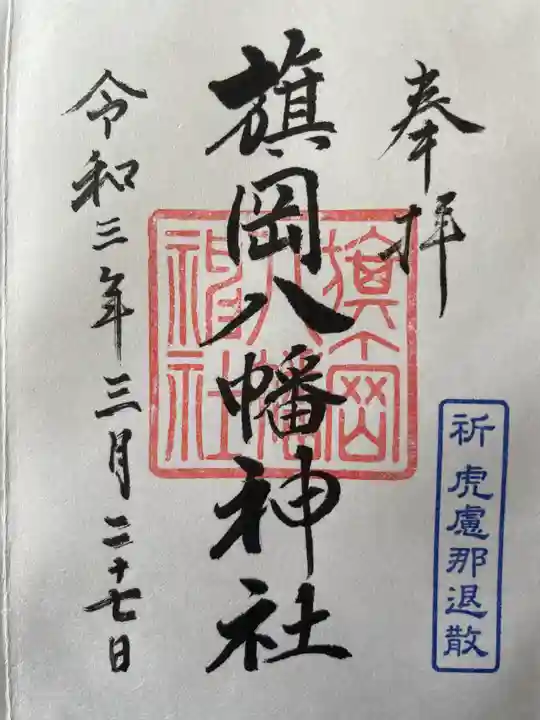 奉拝
旗岡八幡神社
旗岡
八幡
神社
令和三年三月二十七日
祈虎慮那退散